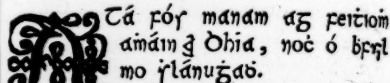 ATá fós manam ag feiṫioṁ
aṁáin ar Dhia, noċ ó bfuil
mo ṡlánuġaḋ.